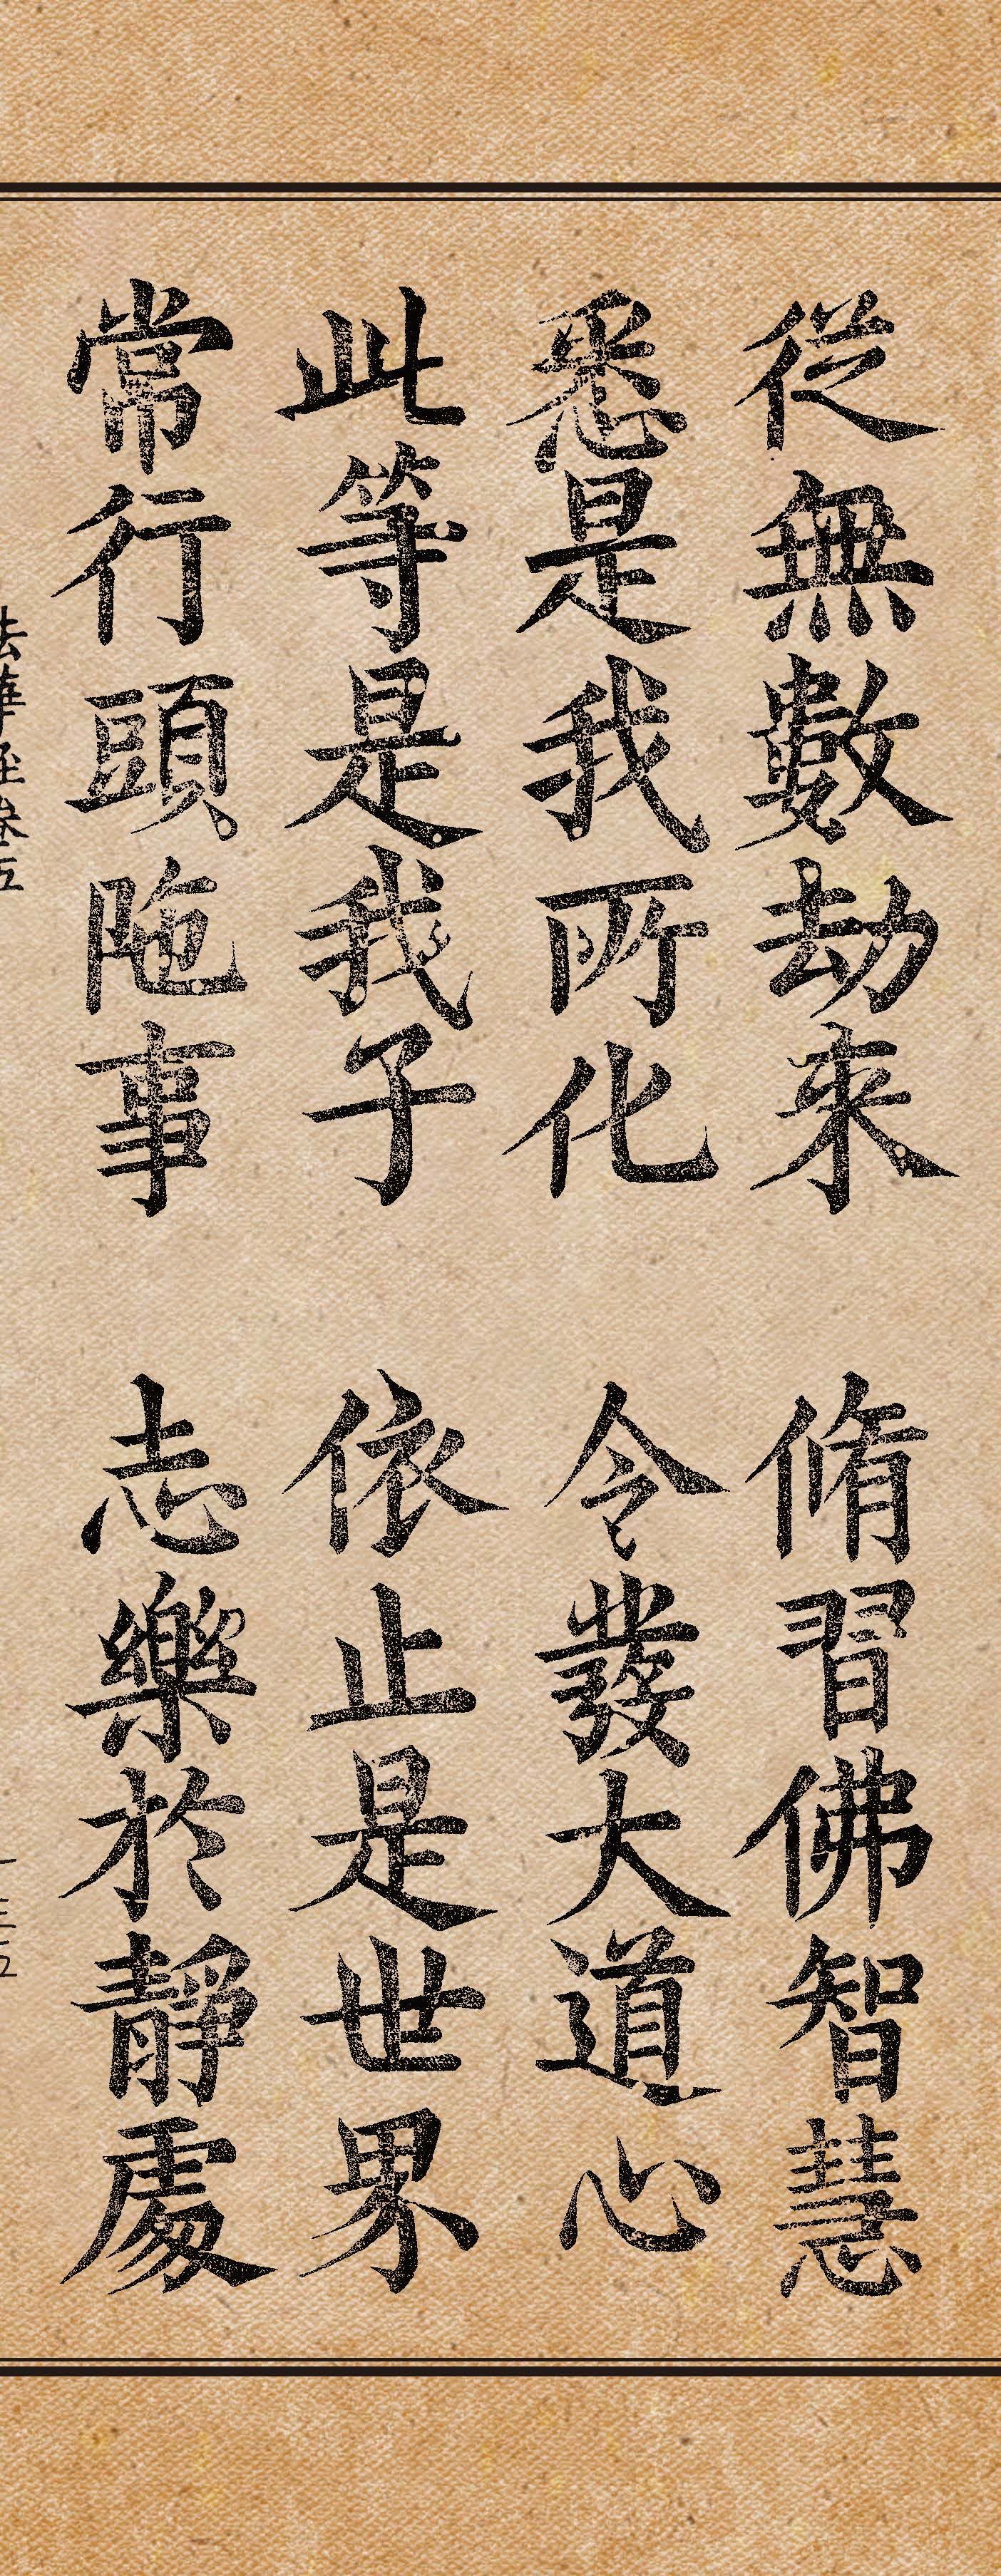 從無數劫來　脩習佛智慧
悉是我所化　令發大道心
此等是我子　依止是世界
常行頭陁事　志樂於靜處
法華經卷五